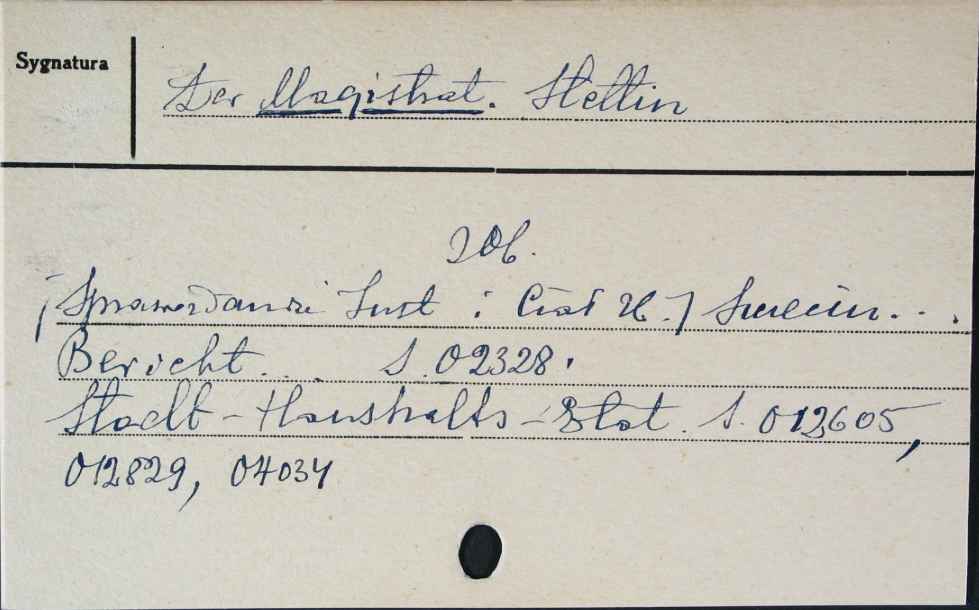 Sygnatura
Der Magistrat. Stettin
zob.
Inst :
Bericht. S. 02328.
Stadt-Haushalts-Etat. S. 012605,
012829, 04034